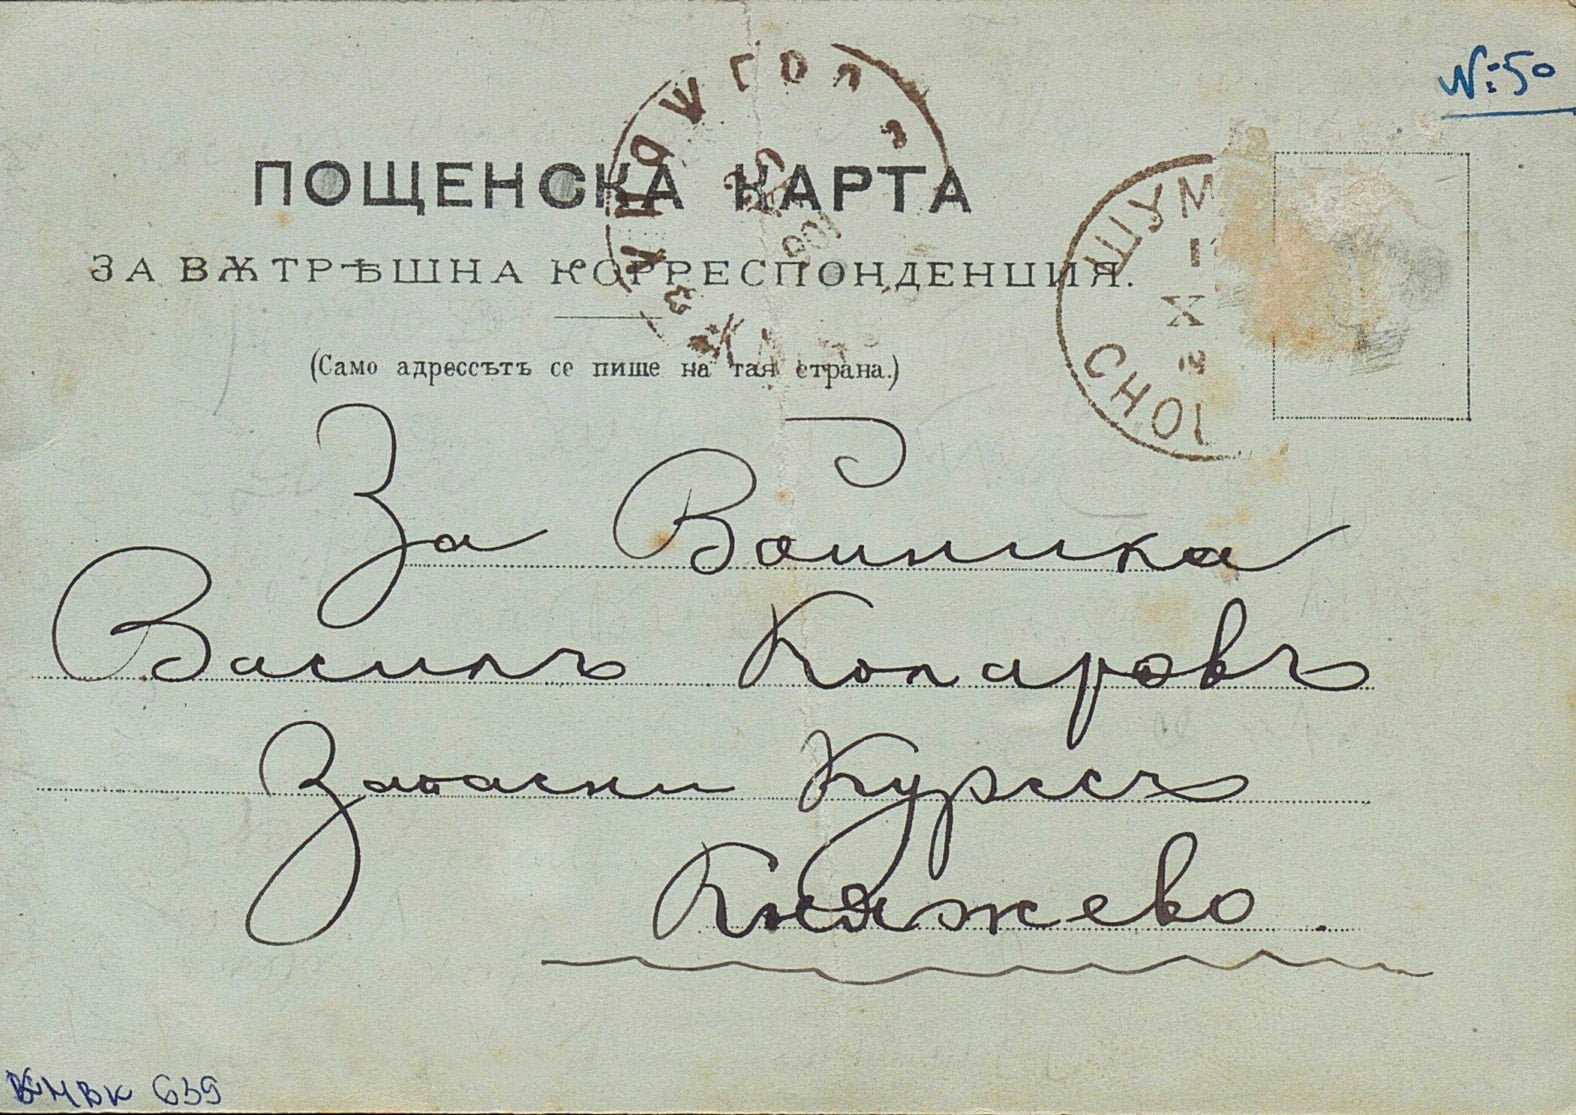 № 50
ПОЩЕНСКА КАРТА
ЗА ВѪТРѢШНА КОРРЕСПОНДЕНЦИЯ.
(Само адрессътъ се пише на тая страна.)
ШУМ
X
СНОІ
За Войника
Василъ Копаровъ
Запасни Курсъ
Княжево.
639